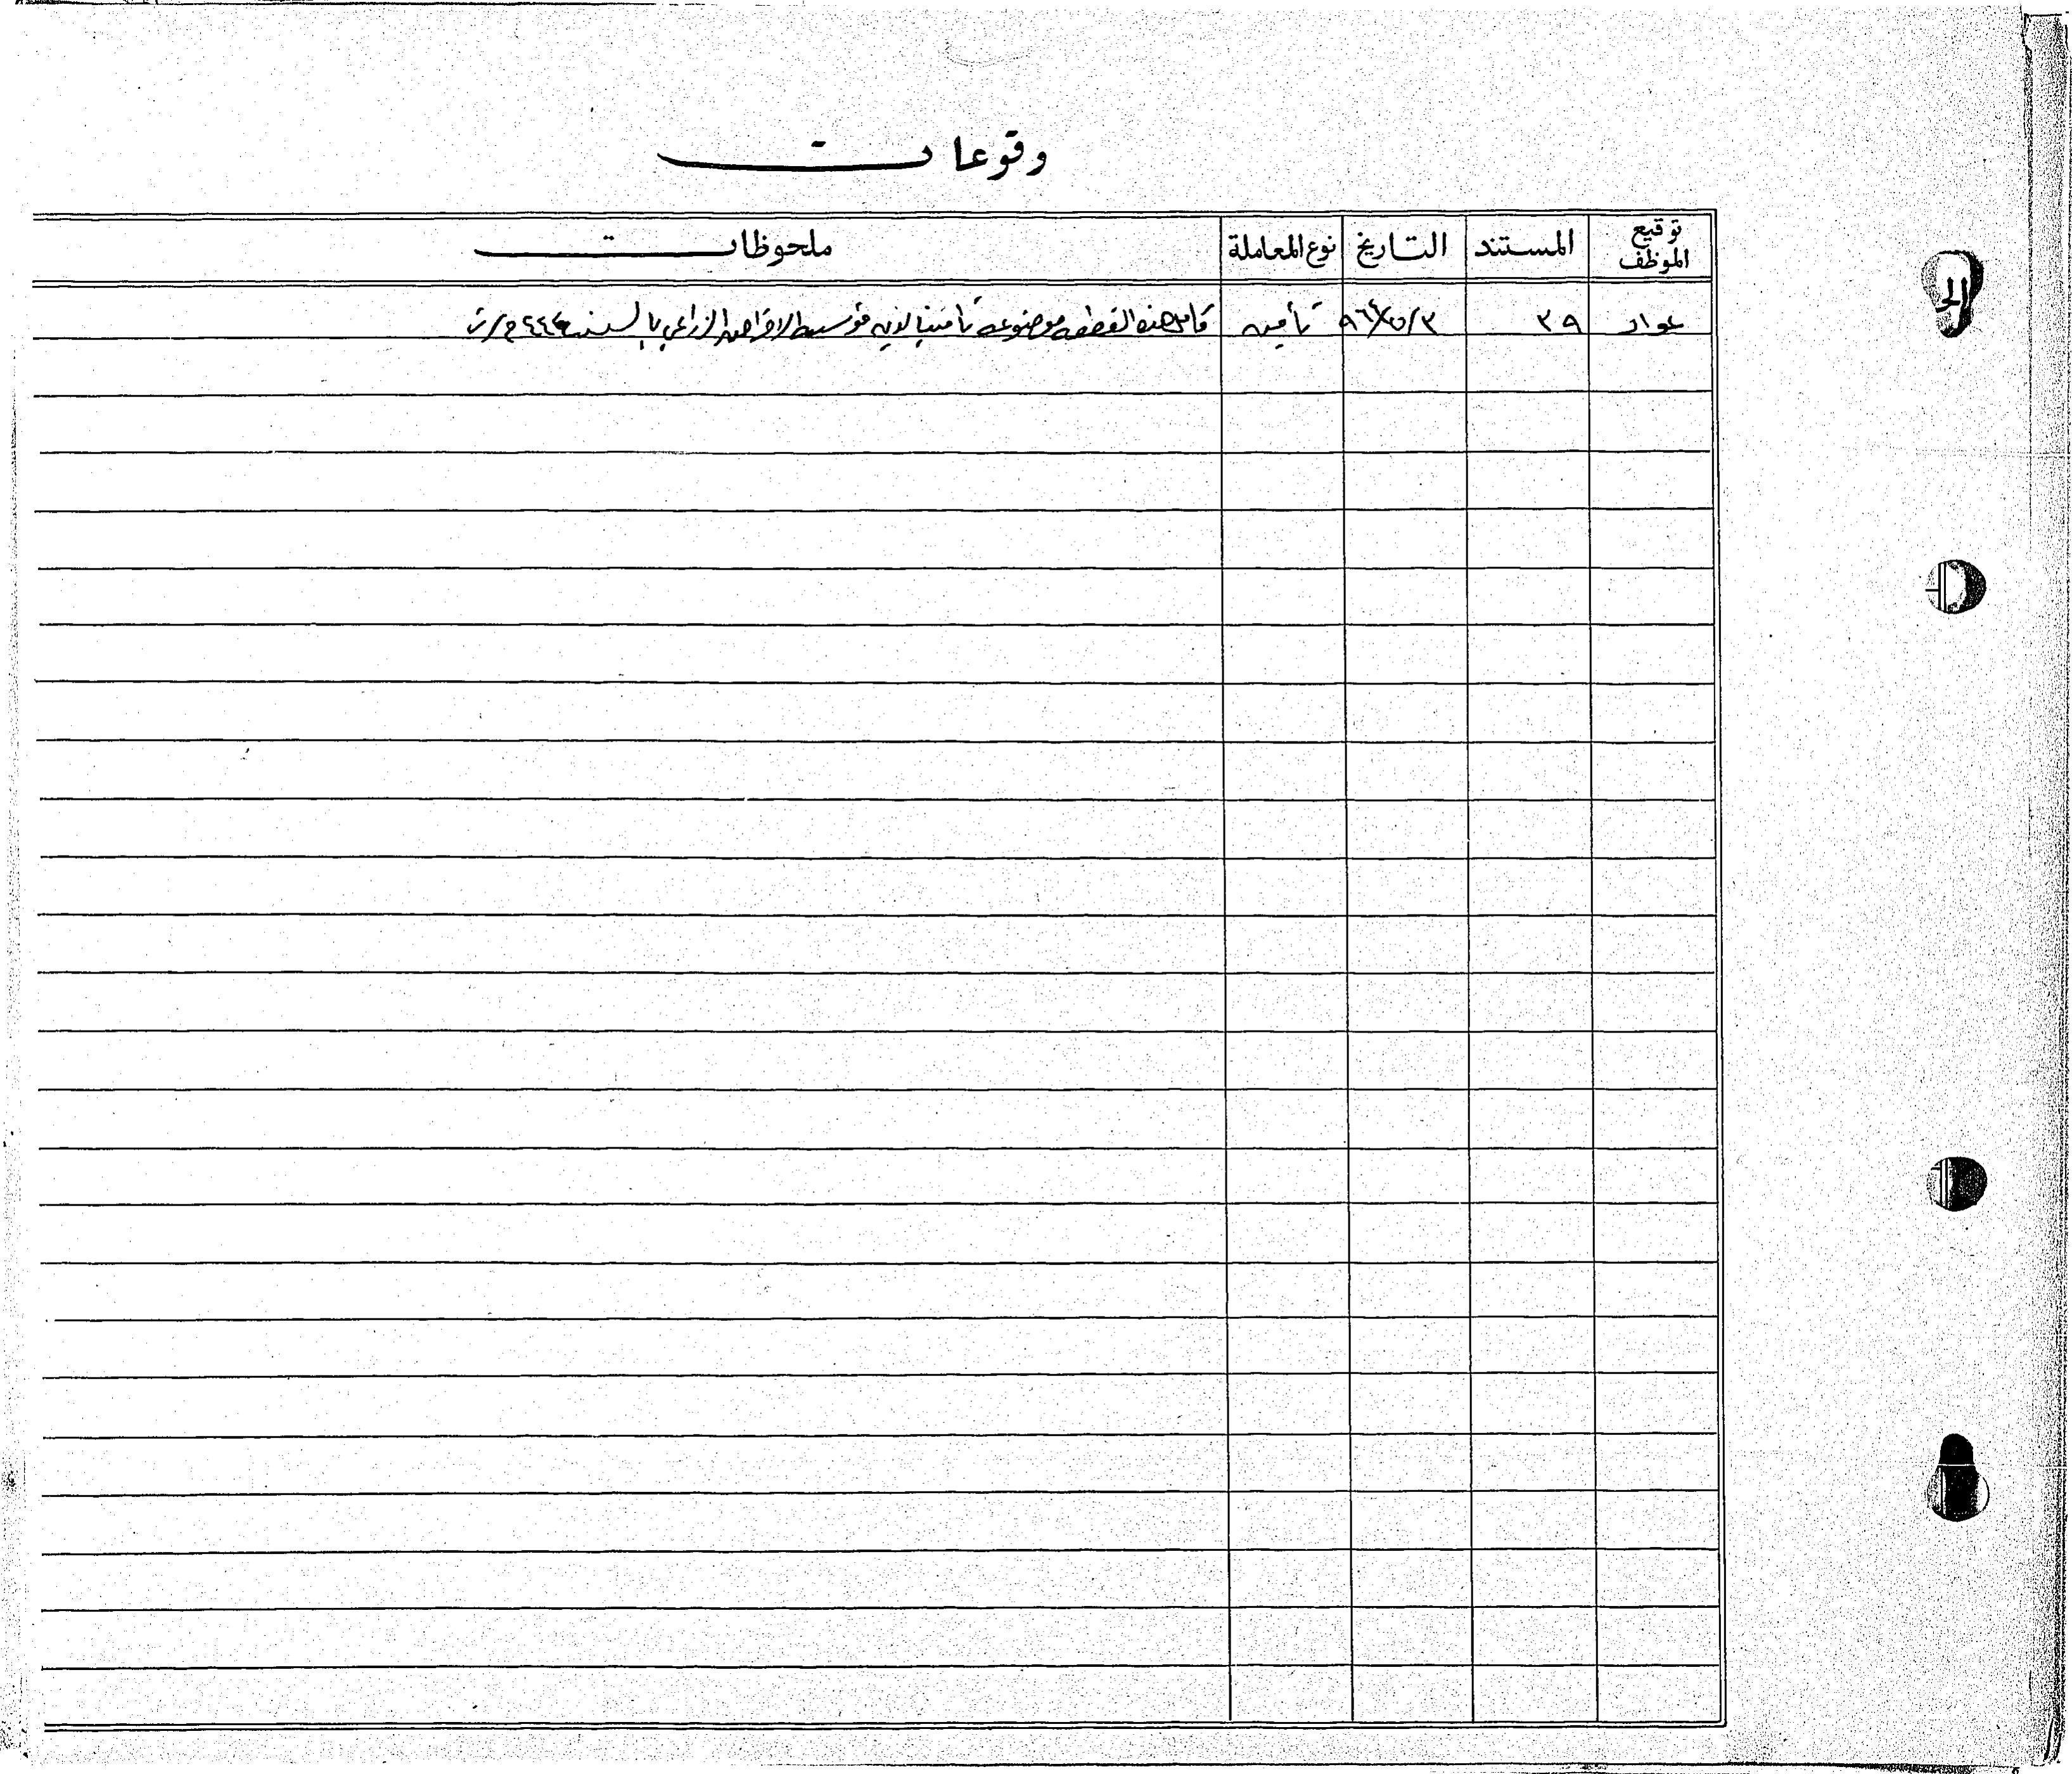 وقوعات
توقيع الموظف المستند التاريخ نوع المعاملة ملحوظات
عواد ٣٩ ٩٦٤/٥/٣ تأمين كامل هذه القطعه موضوعه تأمينا لدين مؤسسة الاقراض الزراعي بالسند